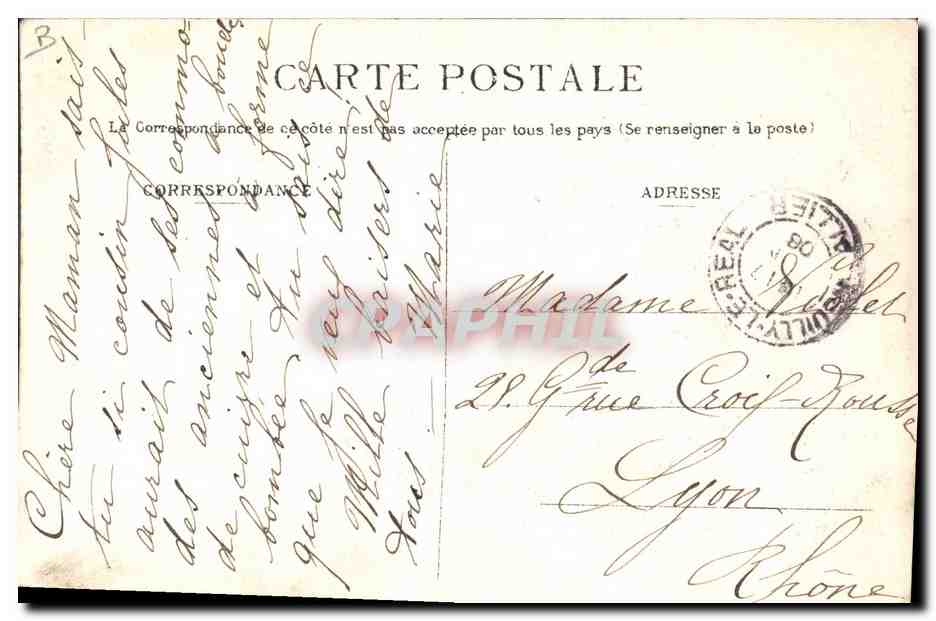 B
CARTE POSTALE
La Correspondance de ce côté n'est pas acceptée par tous les pays (Se renseigner à la poste)
CORRESPONDANCE
Chère Maman sais-
tu si cousin Jules
aurait de ses commo-
des anciennes à boucles
de cuivre et à forme
bombée, tu sais ce
que je veux dire!
Mille baisers de
tous Marie
ADRESSE
NEUILLY-LE-REAL
ALLIER
08
Madame
28. Gde rue Croix-Rousse
Lyon
Rhône
CPAPHIL